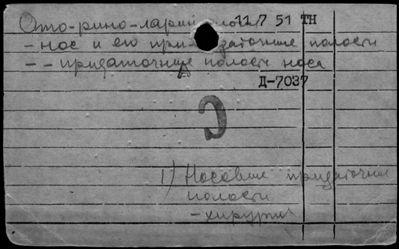 Ото-рино-ларин 11.7 51 ТН
- нос и его при- даточные полости
- - придаточные полости носа
Д-7037
С
1) Носовые придаточные
полости
- хирургия